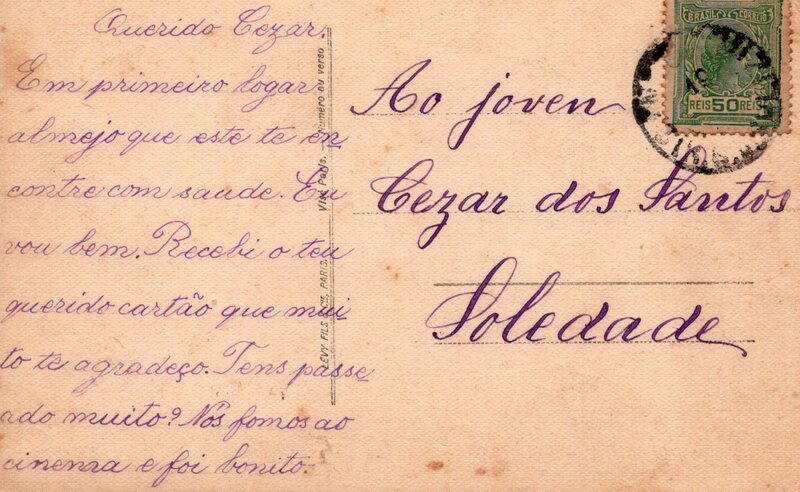 Querido Cezar.
Em primeiro logar
almejo que este te en
contre com saude. Eu
vou bem. Recebi o teu
querido cartão que mui
to te agradeço. Tens passe
ado muito? Nós fomos ao
cinema e foi bonito.
LÉVY FILS PARIS. Visé Paris. — Numéro au verso
Ao joven
Cezar dos Santos
Soledade
BRASIL CORREIO
REIS 50 REIS